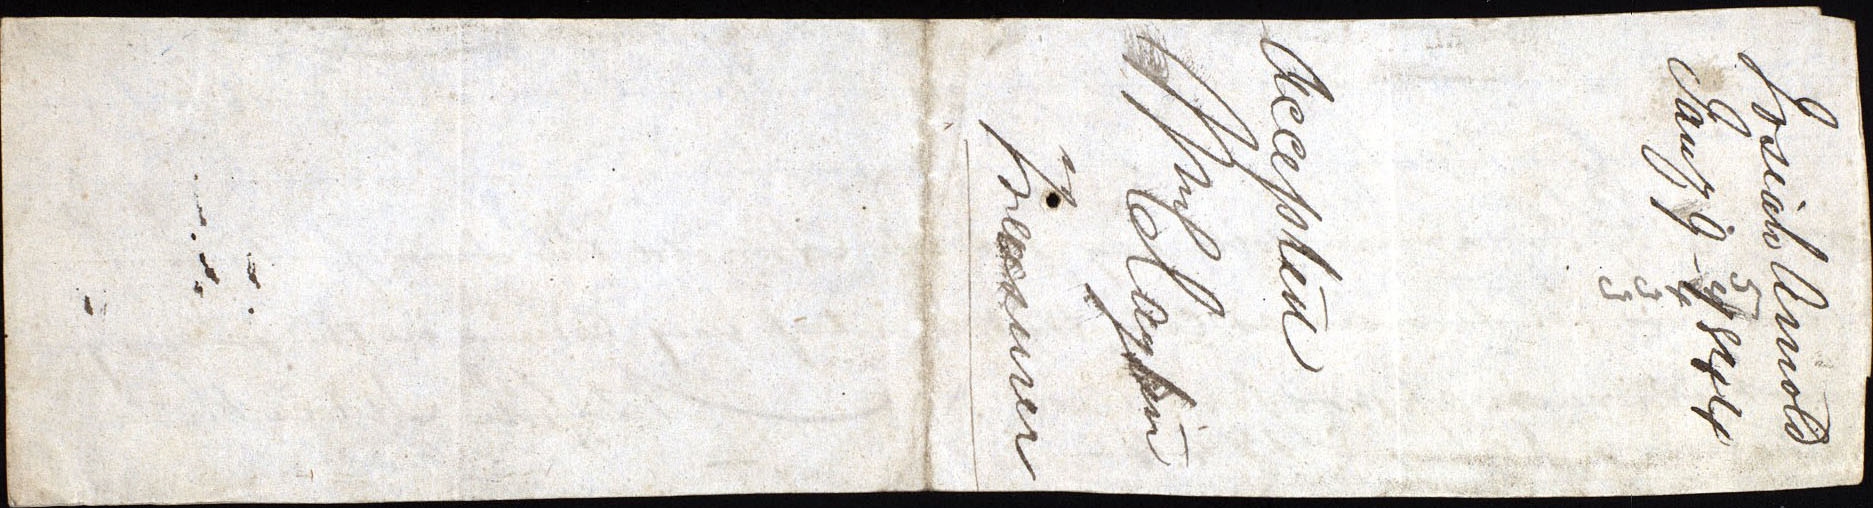 Josiah Arnold
Aug 9 - 1844
5
4
3
3
Accepted
Wm Claflin
Treasurer